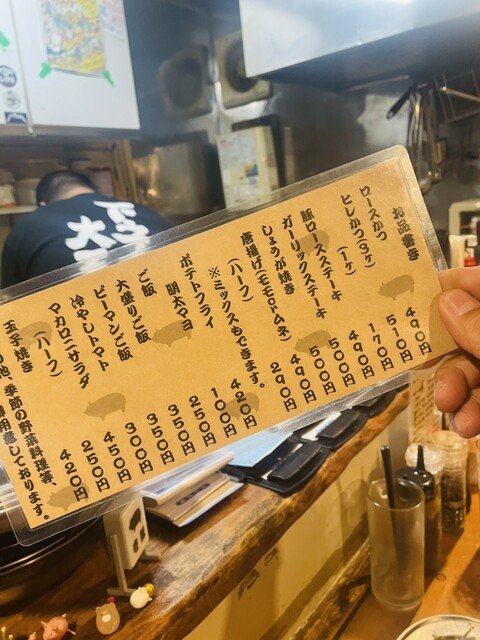 お品書き
ロースかつ 490円
ヒレかつ(3ヶ) 510円
(1ヶ) 170円
豚ロースステーキ 490円
ガーリックステーキ 500円
しょうが焼き 500円
唐揚げ(モモorムネ) 490円
(ハーフ) 290円
※ミックスもできます。
ポテトフライ 420円
明太マヨ 100円
ご飯 250円
大盛りご飯 350円
ピーマンご飯 350円
冷やしトマト 300円
マカロニサラダ 450円
(ハーフ) 250円
玉子焼き 420円
他、季節の野菜料理等、
用意しております。